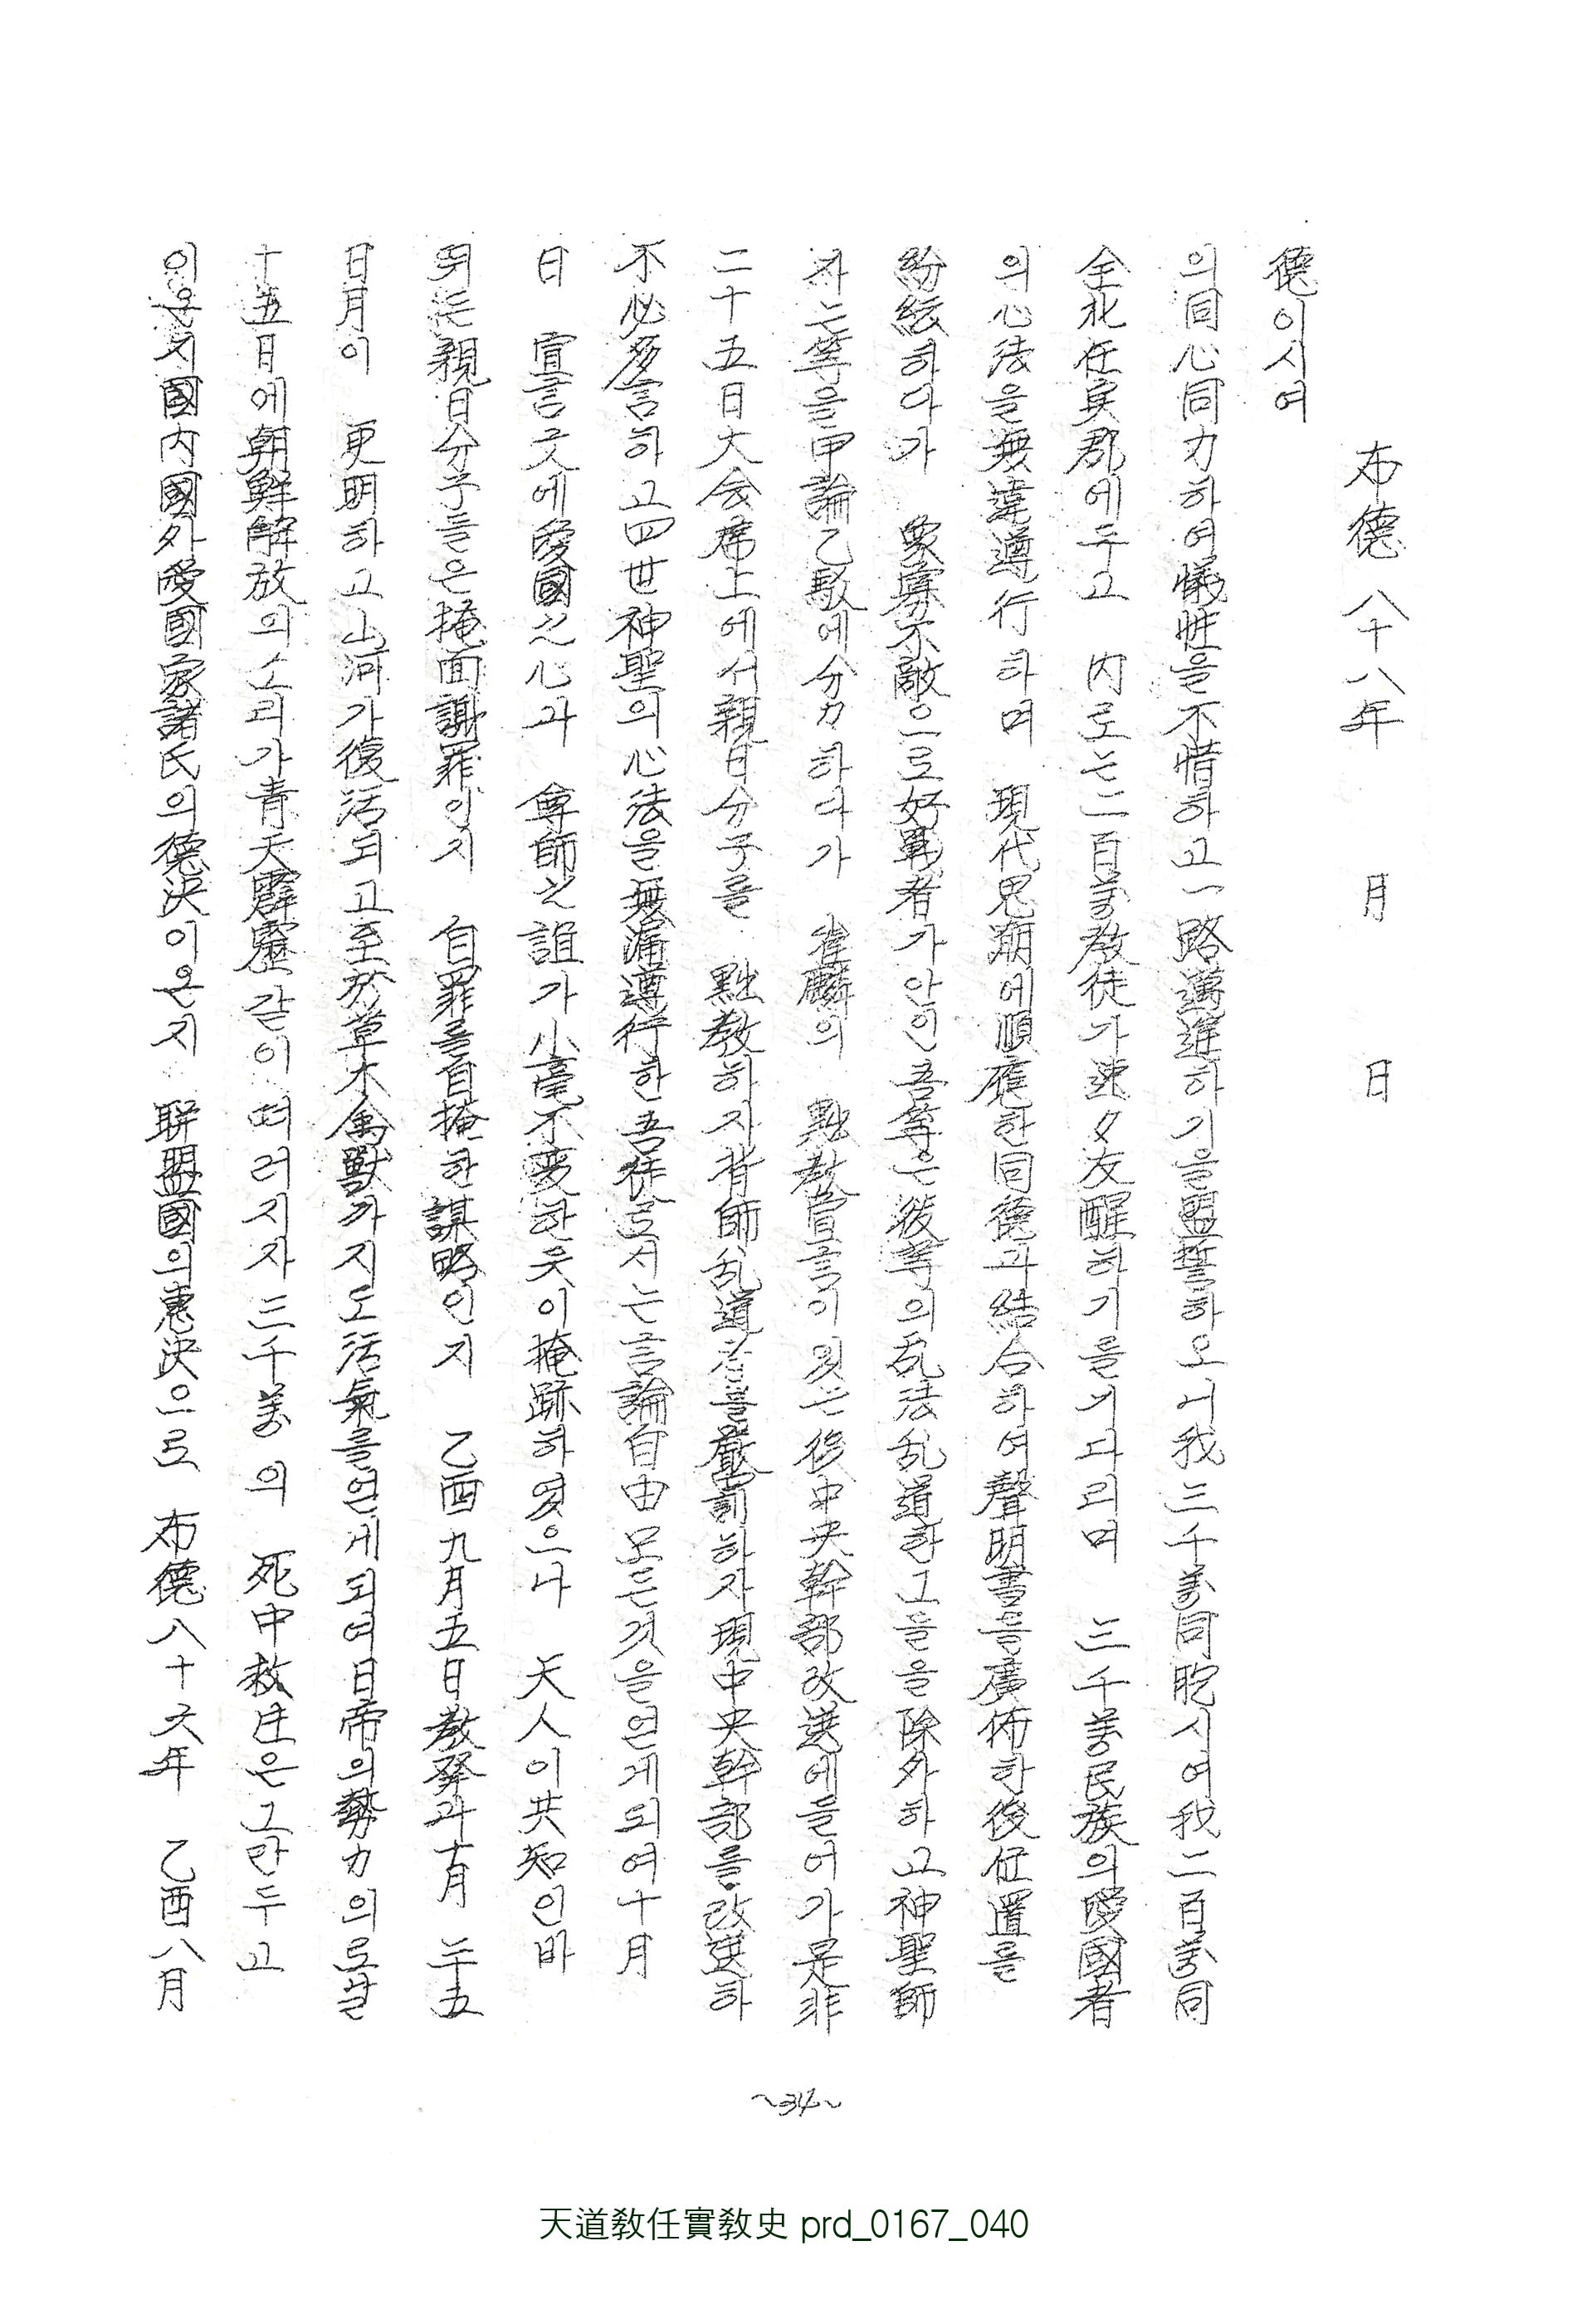 布德 八十八年 月 日
德이시여
의同心同力하여犧牲을不惜하고一路邁進하기을盟誓하오니我三千萬同胞시여我二百萬同
全北任実郡에두고 内로는二百萬敎徒가速々友醒하기를기다리며 三千萬民族의愛國者
의心法을無違遵行하며 現代思潮에順應한同德과結合하여聲明書를廣佈하後位置를
紛紜하다가 衆寡不敵으로好戰者가안인吾等은彼等의乱法乱道한그을을除外하고神聖師
자는等을甲論乙駁에分力하다가 崔麟의 黜敎宣言이잇는後中央幹部改選에들어가是非
二十五日大会席上에서親日分子를 黜敎하자背師乱道者를嚴罰하자現中央幹部를改選하
不必多言하고四世神聖의心法을無漏遵行한吾徒로서는言論自由모든것을얻게되여十月
日 宣言文에愛國之心과 尊師之誼가小毫不変한듯이掩跡하였으나 天人이共知인바
역는親日分子들은掩面謝罪인지 自罪를自掩한謀略인지 乙酉九月五日敎発과十月 二十五
日月이 更明하고山河가復活되고至於草木禽獸까지도活氣를얻게되여日帝의勢力의로살
十五日에朝鮮解放의소리가靑天霹靂같이떠러지자三千萬의 死中救生은그만두고
이온지國内國外愛國家諸氏의德決이온지 聯盟國의憲決으로 布德八十六年 乙酉八月
~34~
天道敎任實敎史 prd_0167_040